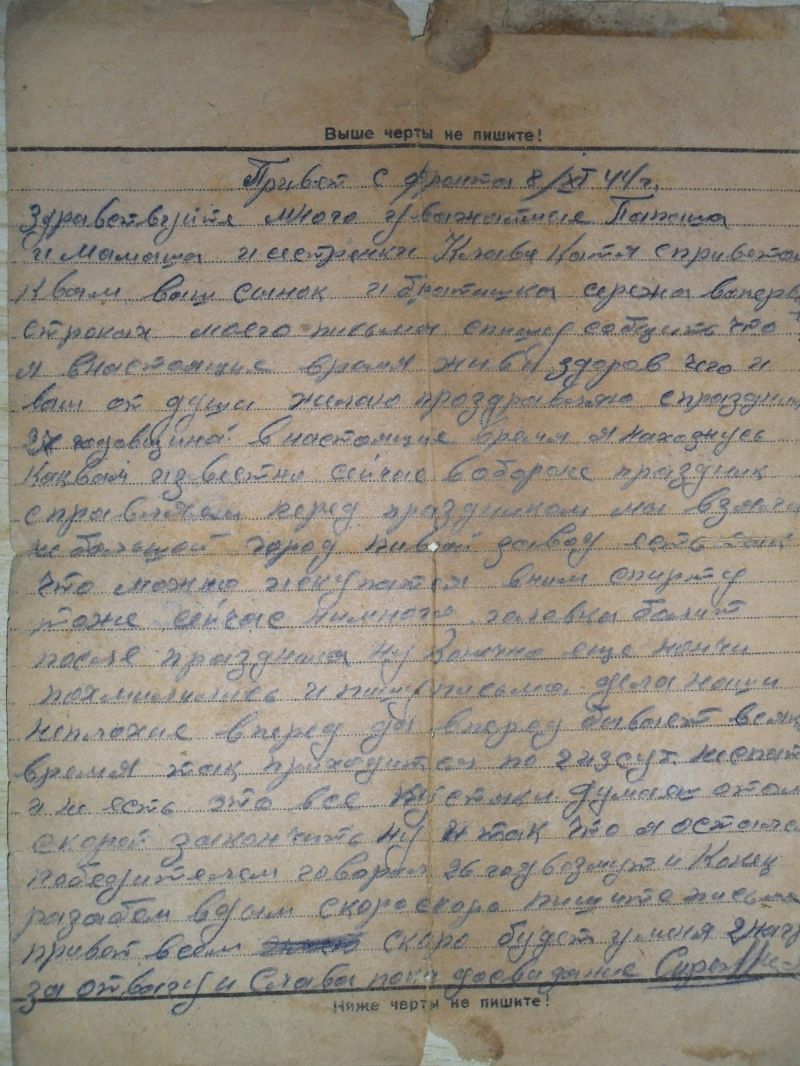 Выше черты не пишите!
Привет с фронта 8/XI 44 г.
Здравствуйте много уважаемые Папаша
и Мамаша и сестренки Клава Катя с привето
к вам ваш сынок и братишка сережа вперв
строках моего письма спишу собщить что
я внастоящие время жив и здоров чего и
вам от души жилаю проздравляю спраздни
годовщина в настоящие время я нахожусь
как вам известно сейчас в обороне праздник
справляем перед праздником мы взяли
небольшой город пивой завод есть
что можно искупатся вним спирту
тоже сейчас нимного головка болит
после праздника ну конечно еще ночи
похмилились и пишу письмо дела наши
неплохие вперед да вперед бывает всяк
время так приходится по 2 и 3 сут неспат
и не есть это все пустяки думаеш отом
скорей закончить ну и так что я остался
победителем говорят 26 год возмут и конец
разабем вдым скоро скоро пишите письма
привет всем скоро будет уминя 2 наг
за отвагу и Слава пока досвидание
Ниже черты не пишите!